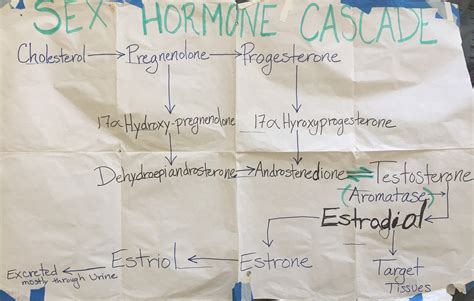 SEX HORMONE CASCADE
Cholesterol → Pregnenolone → Progesterone
17α Hydroxy-pregnenolone 17α Hyroxyprogesterone
Dehydroepiandrosterone → Androstenedione ⇌ Testosterone
(Aromatase)
Estradial
Estriol Estrone Target
Tissues
Excreted
mostly through Urine